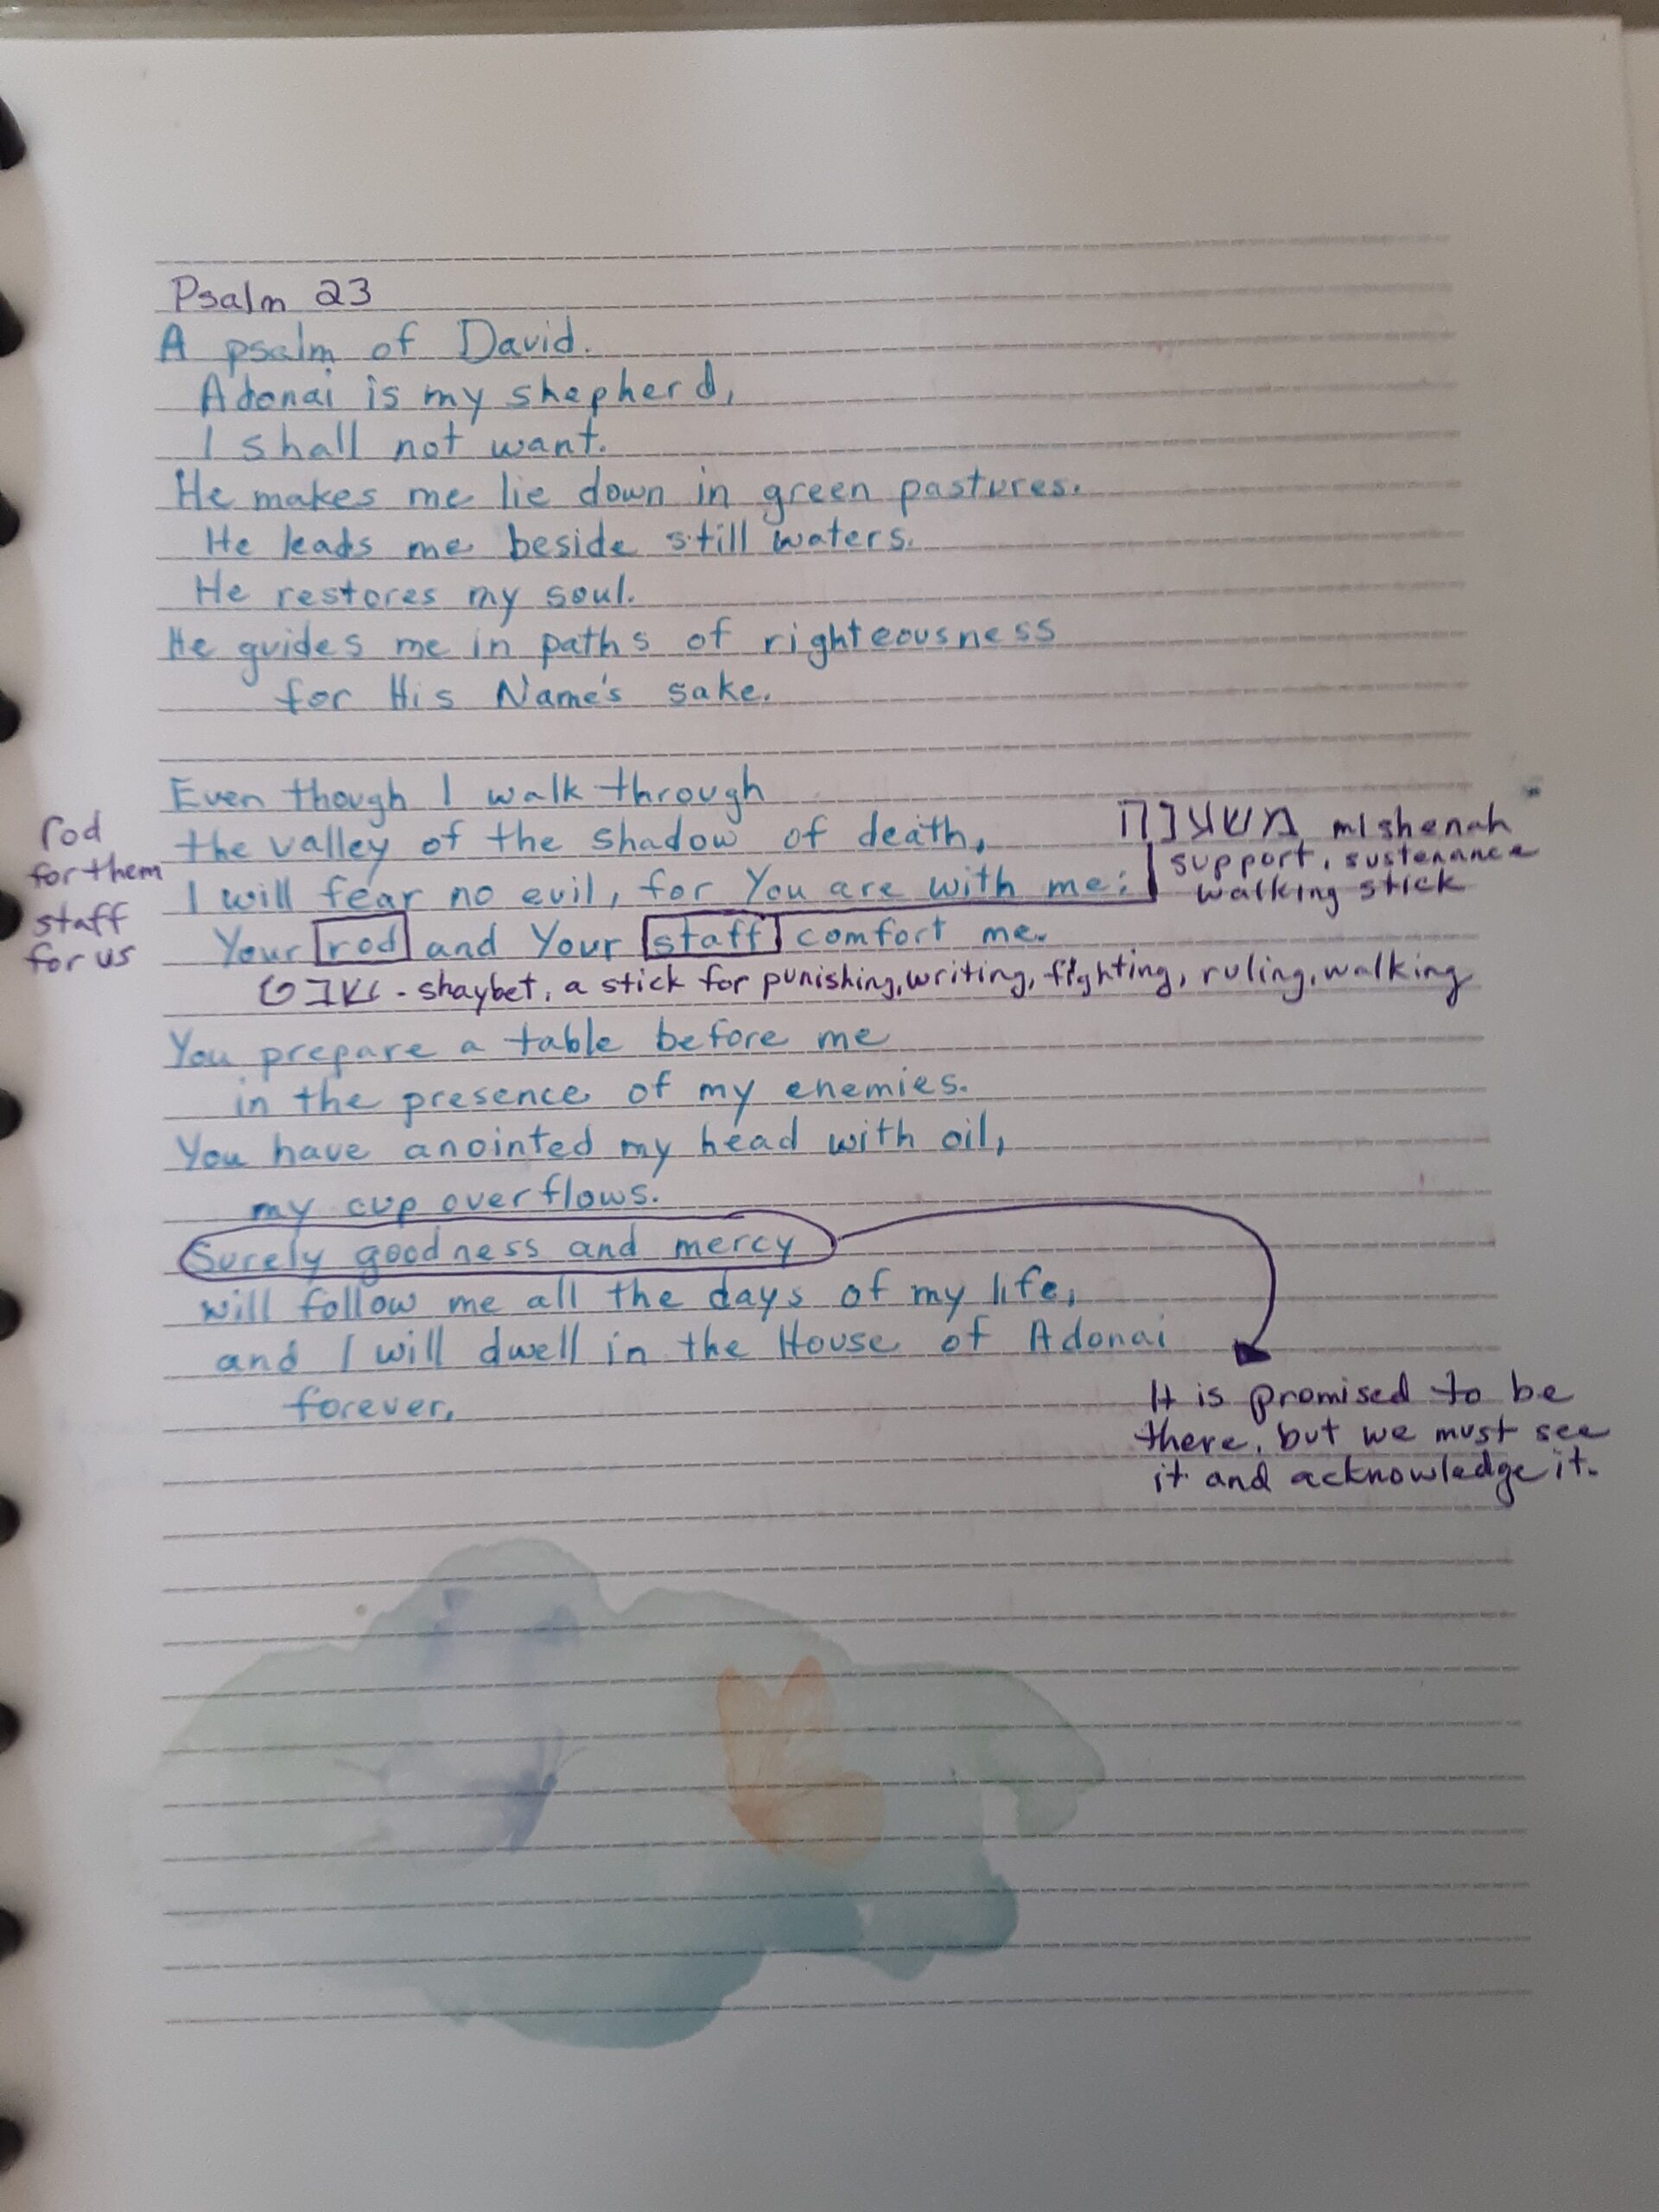 Psalm 23
A psalm of David.
Adonai is my shepherd,
I shall not want.
He makes me lie down in green pastures.
He leads me beside still waters.
He restores my soul.
He guides me in paths of righteousness
for His Name's sake.
Even though I walk through
the valley of the shadow of death,
I will fear no evil, for You are with me:
Your rod and Your staff comfort me.
rod
for them
staff
for us
משענה mishenah
support, sustenance
walking stick
שבט - shaybet, a stick for punishing, writing, fighting, ruling, walking
You prepare a table before me
in the presence of my enemies.
You have anointed my head with oil,
my cup overflows.
Surely goodness and mercy
will follow me all the days of my life,
and I will dwell in the House of Adonai
forever.
It is promised to be
there, but we must see
it and acknowledge it.